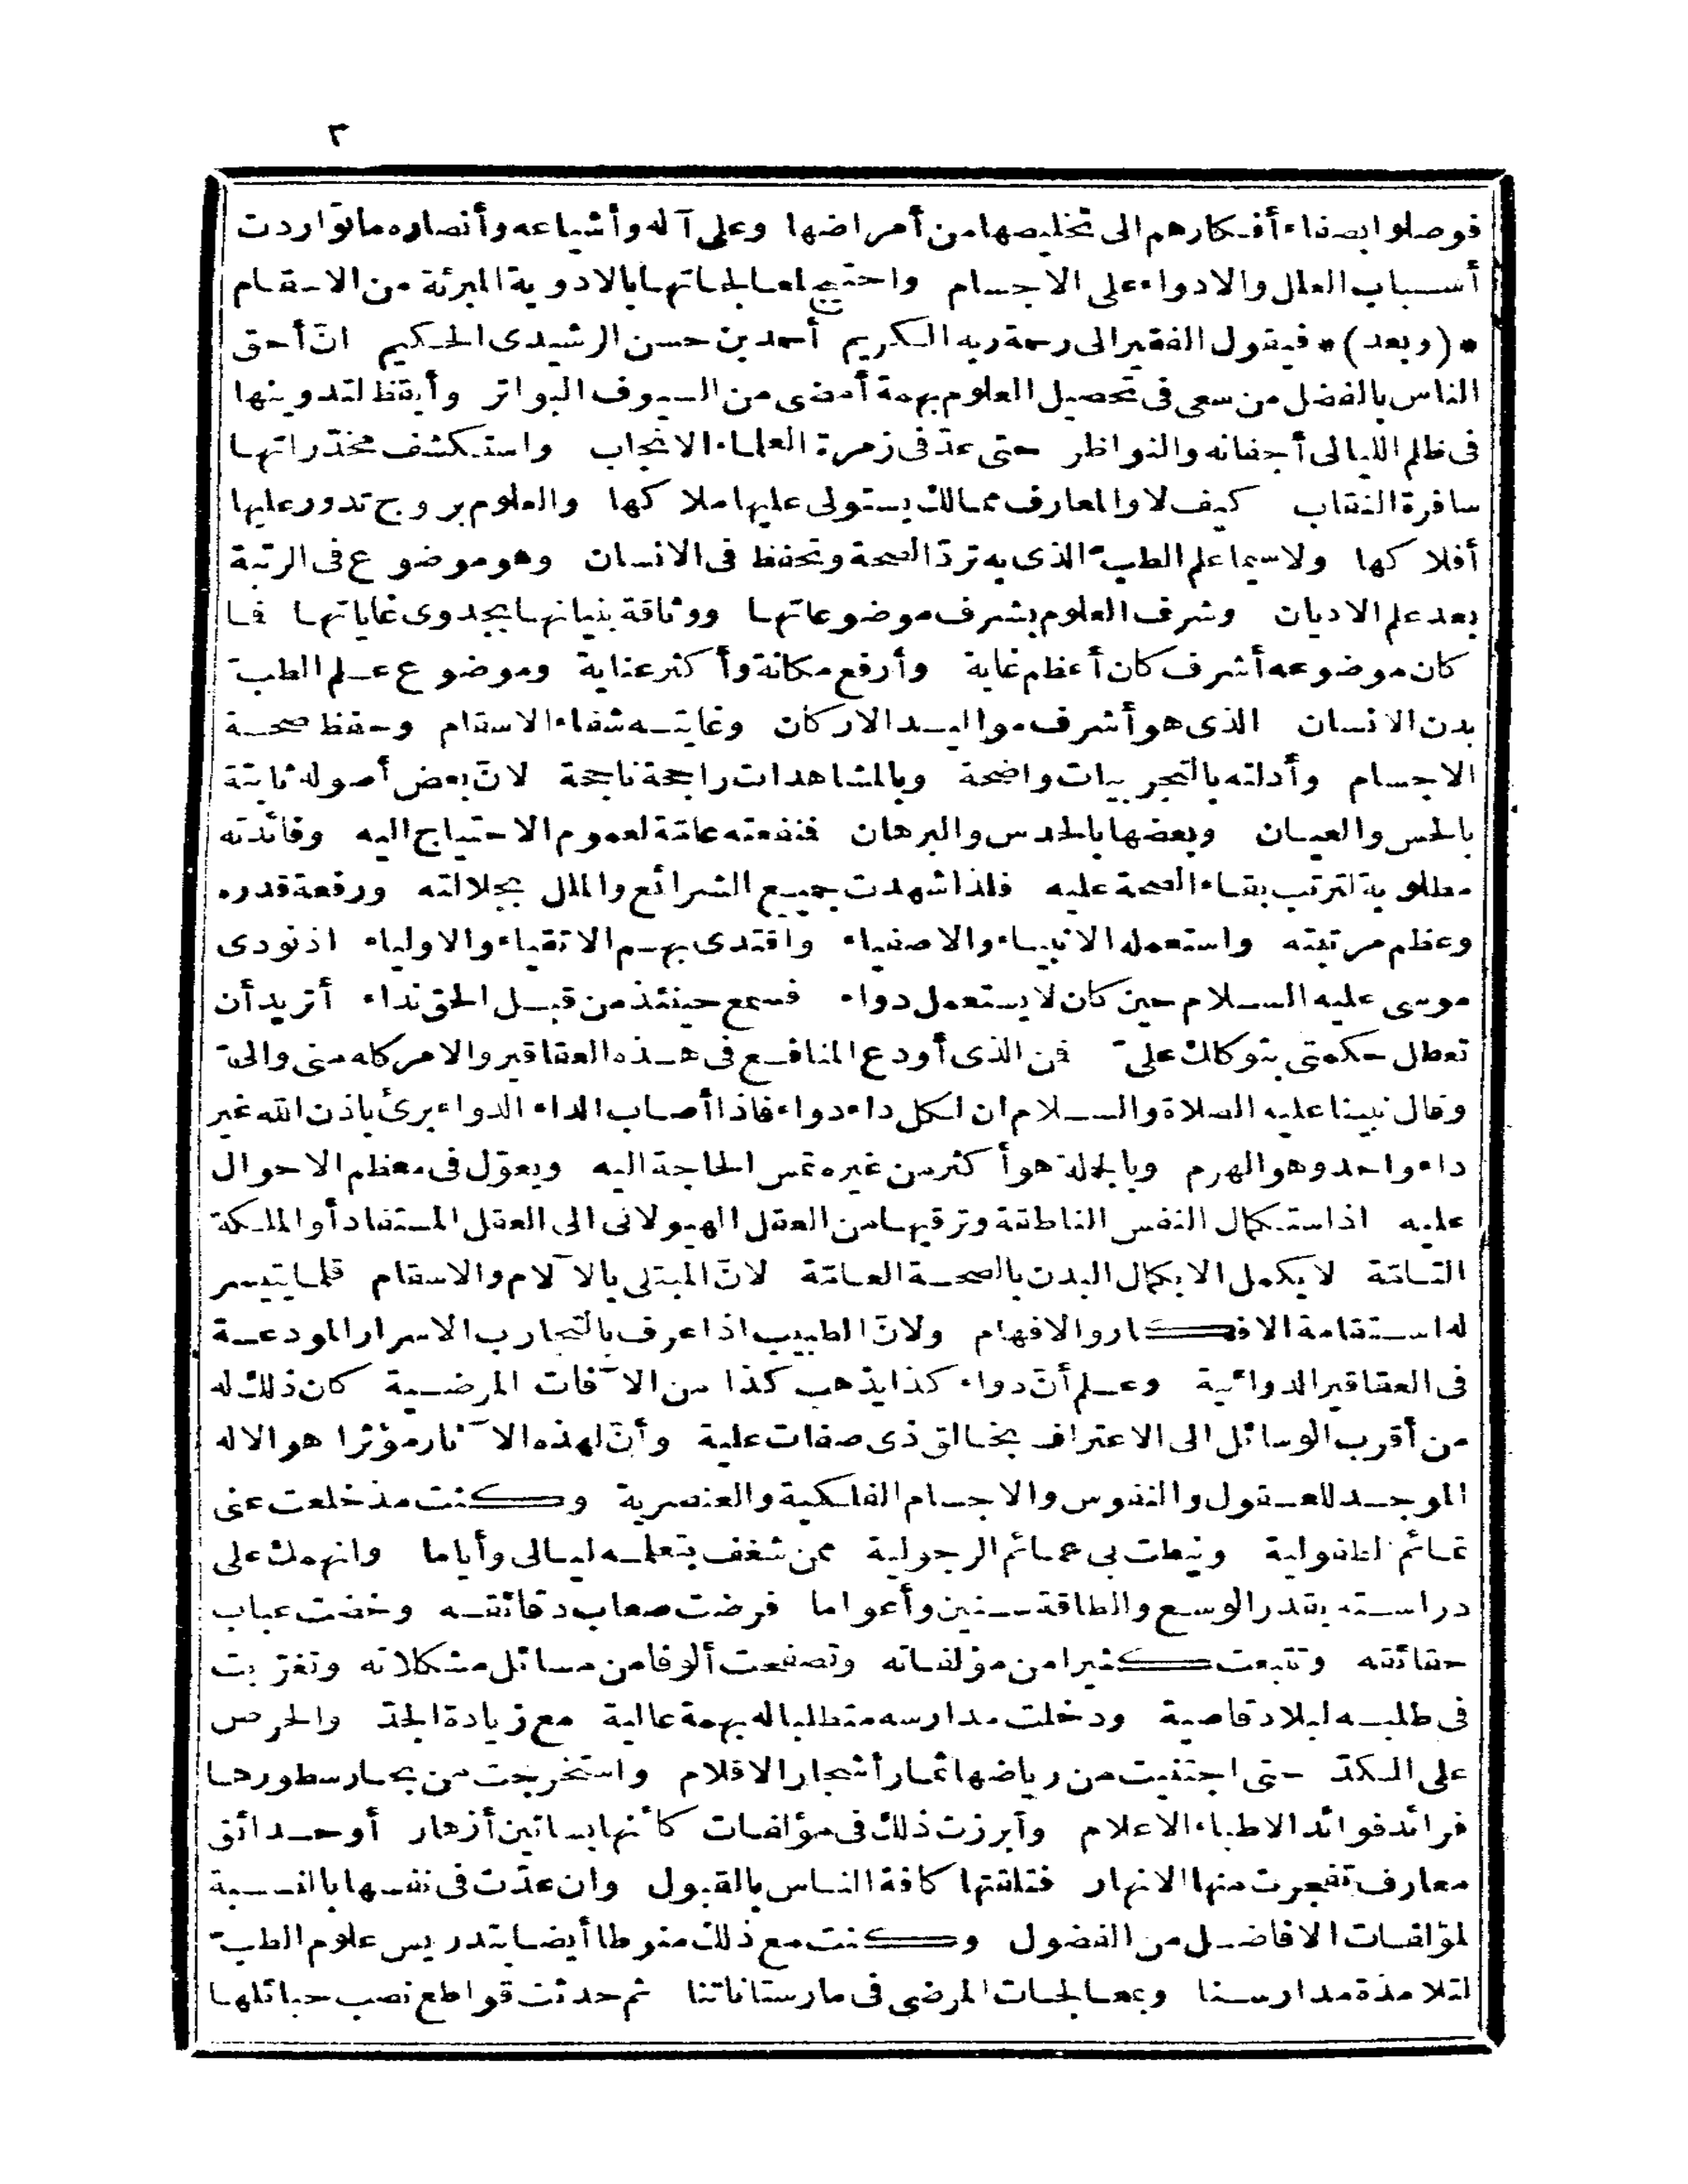 ٣
فوصلوا بصفاء أفكارهم الى تخليصها من أمراضها وعلى آله وأشياعه وأنصاره ما تواردت
أسباب العلل والادواء على الاجسام واحتيج لمعالجاتها بالادوية المبرئة من الاسقام
* (وبعد) * فيقول الفقير الى رحمة ربه الكريم أحمد بن حسن الرشيدى الحكيم انّ أحق
الناس بالفضل من سعى فى تحصيل العلوم بهمة أمضى من السيوف البواتر وأيقظ لتدوينها
فى ظلم الليالى أجفانه والنواظر حتى عدّ فى زمرة العلماء الانجاب واستكشف مخدّراتها
سافرة النقاب كيف لا والمعارف ممالك يستولى عليها ملاكها والعلوم بروج تدور عليها
أفلاكها ولا سيما علم الطب الذى به تردّ الصحة وتحفظ فى الانسان وهو موضوع فى الرتبة
بعد علم الاديان وشرف العلوم بشرف موضوعاتها ووثاقة بنيانها بجدوى غاياتها فما
كان موضوعه أشرف كان أعظم غاية وأرفع مكانة وأكثر عناية وموضوع علم الطب
بدن الانسان الذى هو أشرف مواليد الاركان وغايته شفاء الاسقام وحفظ صحة
الاجسام وأدلته بالتجربيات واضحة وبالمشاهدات راجحة ناجحة لانّ بعض أصوله ثابتة
بالحس والعيان وبعضها بالحدس والبرهان فنفعته عامّة لعموم الاحتياج اليه وفائدته
مطلوبة لترتب بقاء الصحة عليه فلذا شهدت جميع الشرائع والملل بجلالته ورفعة قدره
وعظم مرتبته واستعمله الانبياء والاصفياء واقتدى بهم الاتقياء والاولياء اذ نودى
موسى عليه السلام حين كان لا يستعمل دواء فسمع حينئذ من قبل الحق نداء أتريد أن
تعطل حكمتى بتوكلك علىّ فن الذى أودع المنافع فى هذه العقاقير والامر كله منى والىّ
وقال نبينا عليه الصلاة والسلام ان لكل داء دواء فاذا أصاب الداء الدواء برئ باذن الله غير
داء واحد وهو الهرم وبالجملة هو أكثر من غيره تمس الحاجة اليه ويعوّل فى معظم الاحوال
عليه اذ استكمال النفس الناطقة وترقيها من العقل الهيولانى الى العقل المستفاد أو الملكة
التامّة لا يكمل الا بكمال البدن بالصحة العامّة لانّ المبتلى بالآلام والاسقام قلما يتيسر
له استقامة الافكار والافهام ولانّ الطبيب اذا عرف بالتجارب الاسرار المودعة
فى العقاقير الدوائية وعلم أنّ دواء كذا يذهب كذا من الآفات المرضية كان ذلك له
من أقرب الوسائل الى الاعتراف بخالق ذى صفات علية وأنّ لهذه الآثار مؤثرا هو الاله
الموجد للعقول والنفوس والاجسام الفلكية والعنصرية وكنت مذ خلعت عنى
تمائم الطفولية ونيطت بى عمائم الرجولية ممن شغف بتعلمه ليالى وأياما وانهمك على
دراسته بقدر الوسع والطاقة سنين وأعواما فرضت صعاب دقائقه وخضت عباب
حقائقه وتتبعت كثيرا من مؤلفاته وتصفحت ألوفا من مسائل مشكلاته وتغرّبت
فى طلبه لبلاد قاصية ودخلت مدارسه متطلبا له بهمة عالية مع زيادة الجدّ والحرص
على الكدّ حتى اجتنيت من رياضها ثمار أشجار الاقلام واستخرجت من بحار سطورها
فرائد فوائد الاطباء الاعلام وأبرزت ذلك فى مؤلفات كأنها بساتين أزهار أو حدائق
معارف تفجرت منها الانهار فتلقتها كافة الناس بالقبول وان عدّت فى نفسها بالنسبة
لمؤلفات الافاضل من الفضول وكنت مع ذلك منوطا أيضا بتدريس علوم الطب
لتلامذة مدارسنا وبمعالجات المرضى فى مارستاناتنا ثم حدثت قواطع نصب حبائلها